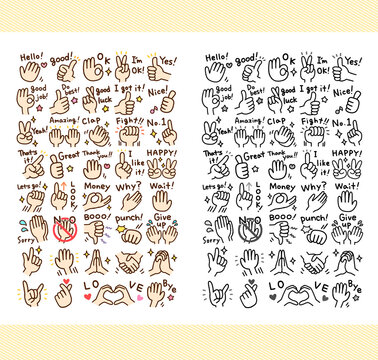 Hello! good! OK I'm OK! Yes!
good job! Do best! good luck I got it! Nice!
Yeah! Amazing! Clap Fight!! No.1
That's it Great Thank you!! I like it! HAPPY!
Let's go! LOOK Money Why? Wait!
Sorry NO BOOO! punch! Give up
LOVE Bye
Hello! good! OK I'm OK! Yes!
good job! Do best! good luck I got it! Nice!
Yeah! Amazing! Clap Fight!! No.1
That's it Great Thank you!! I like it! HAPPY!
Let's go! LOOK Money Why? Wait!
Sorry NO BOOO! punch! Give up
LOVE Bye